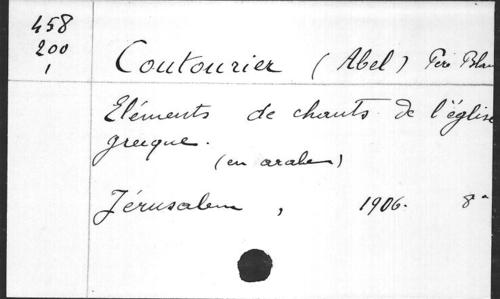 458
200
1
Coutourier (Abel) Père Blan
Eléments de chants de l'église
grecque.
(en arabe)
Jérusalem, 1906. 8°